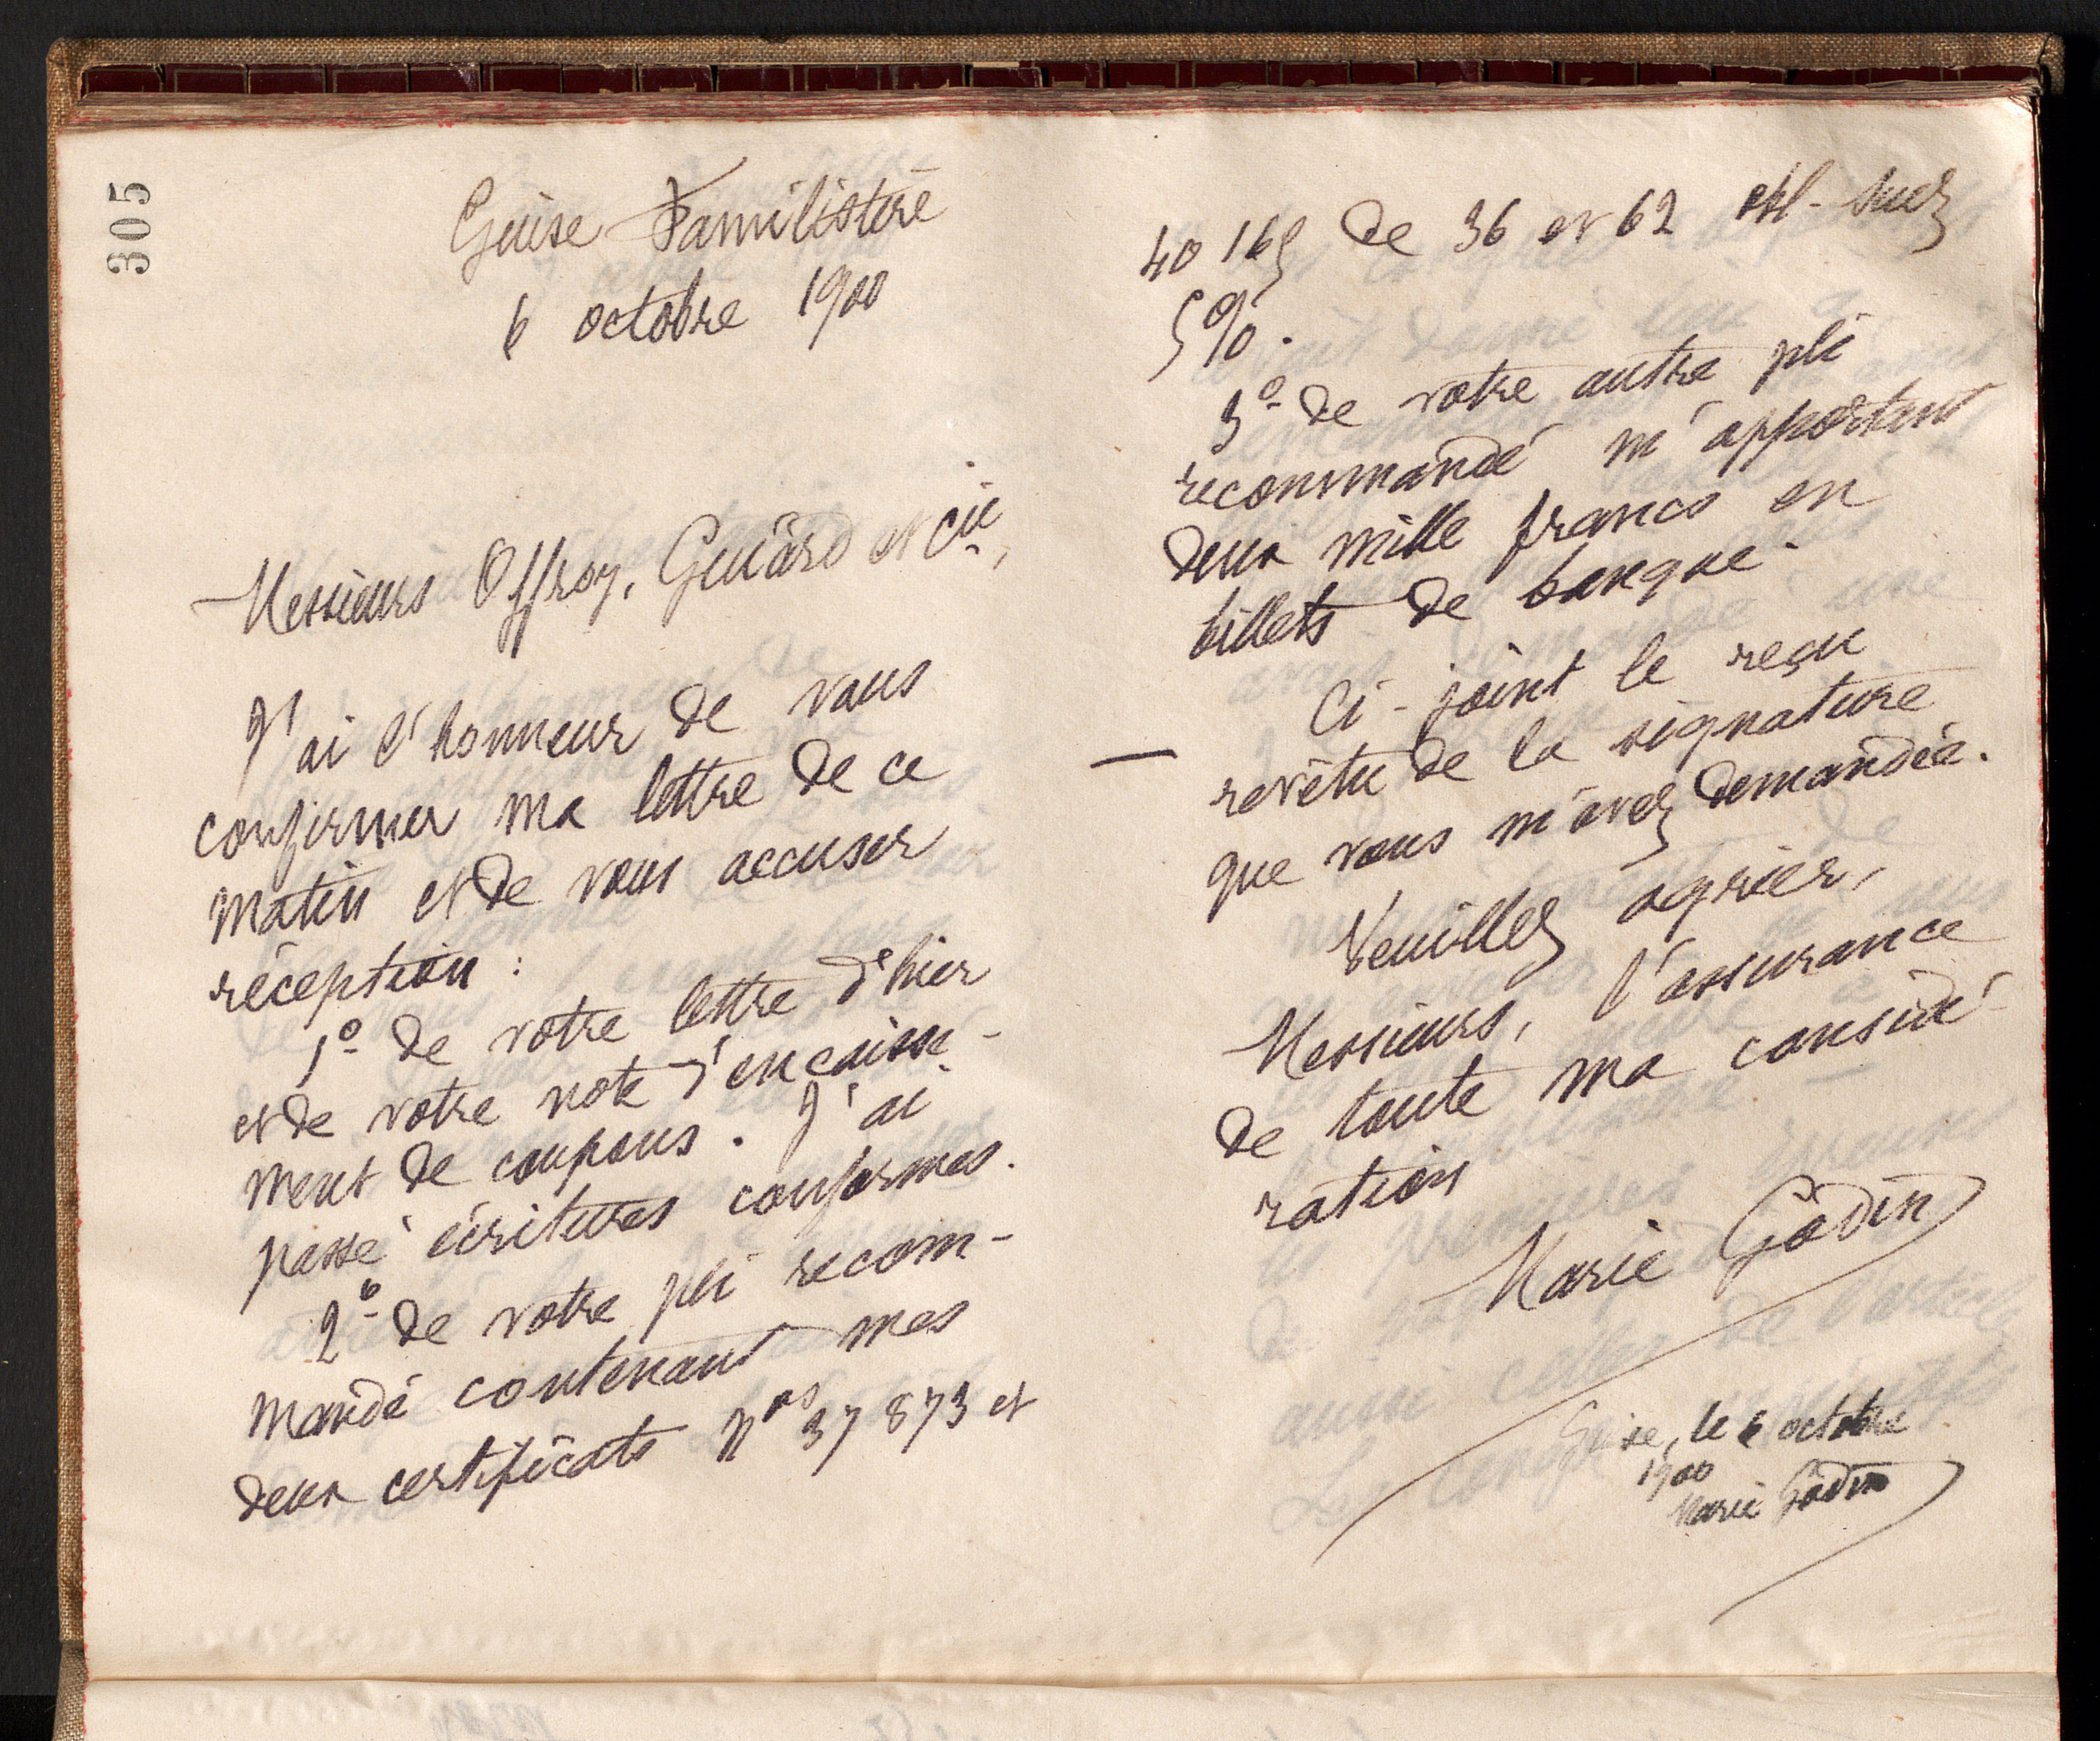 305
Guise Familistère
6 octobre 1900
Messieurs Offroy, Guiard et Cie,
J'ai l'honneur de vous
confirmer ma lettre de ce
matin et de vous accuser
réception :
1º de votre lettre d'hier
et de votre note d'encaisse-
ment de coupons. J'ai
passé écritures conformes.
2º de votre pli recom-
mandé contenant mes
deux certificats nos 37 873 et
40 165 de 36 et 62 obl. Suez
5 %.
3º de votre autre pli
recommandé m'apportant
deux mille francs en
billets de banque.
Ci-joint le reçu
revêtu de la signature
que vous m'avez demandée.
Veuillez agréer,
Messieurs, l'assurance
de toute ma considé-
ration
Marie Godin
Guise, le 6 octobre
1900
Marie Godin